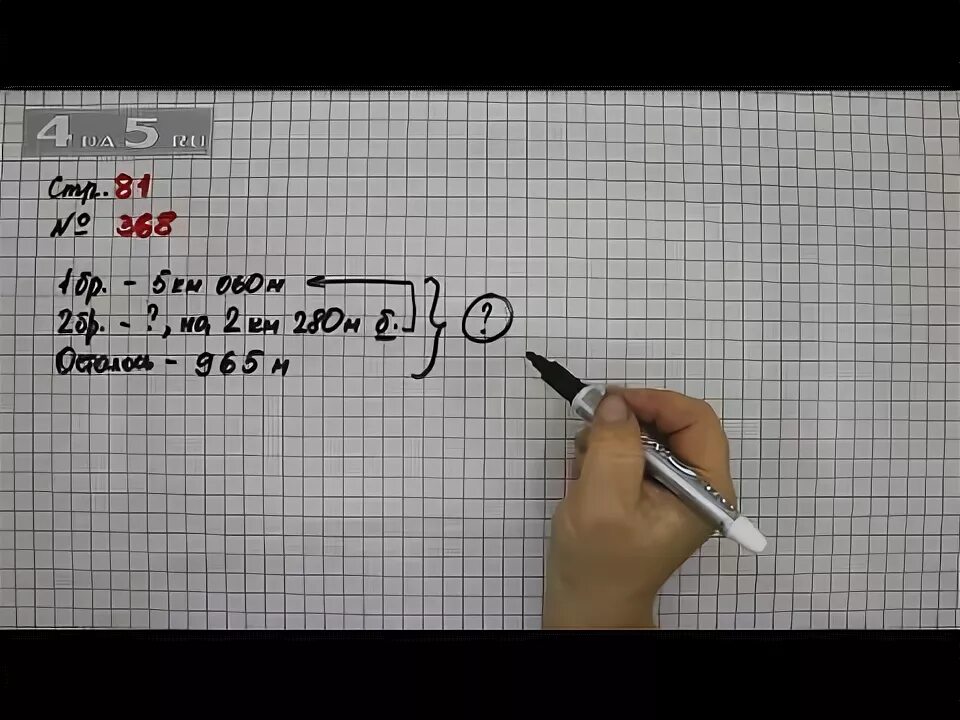 4 НА 5 RU
Стр. 81
№ 368
1 бр. - 5 км 060 м
2 бр. - ?, на 2 км 280 м б.
Осталось - 965 м
?